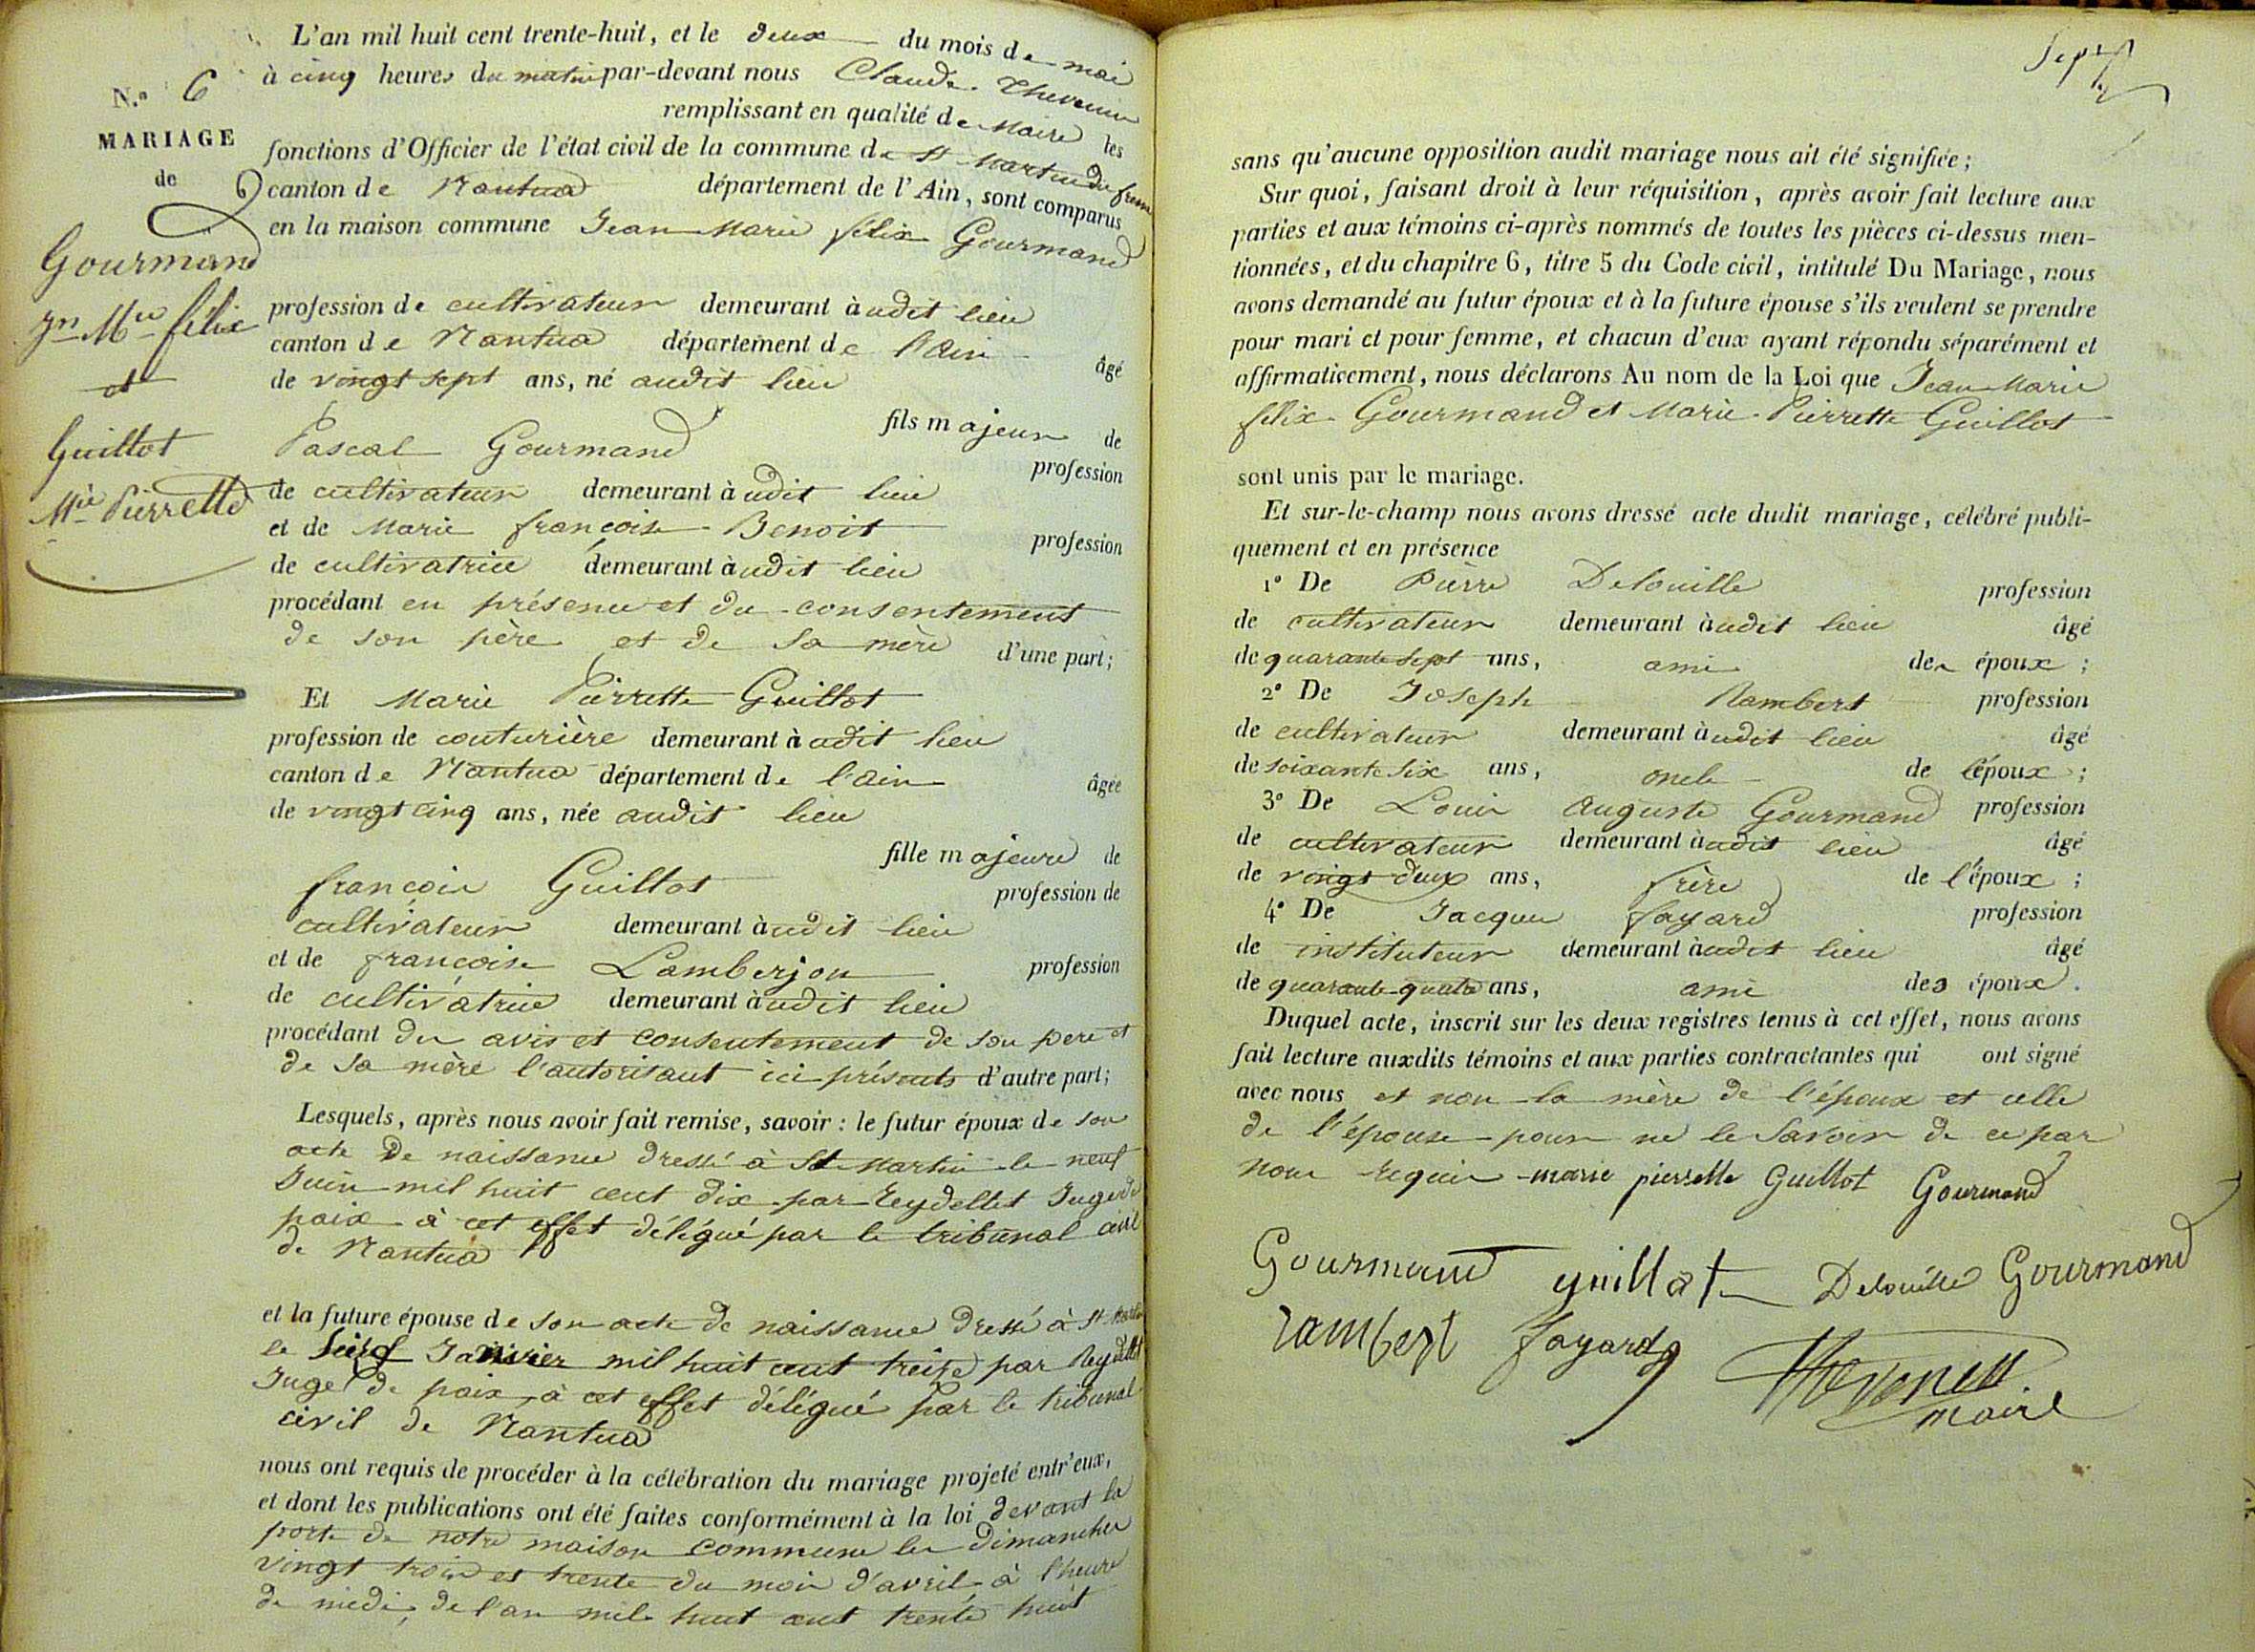 L'an mil huit cent trente-huit, et le deux du mois de mai
à cinq heures du matin par-devant nous Claude Thevenin
remplissant en qualité de Maire les
fonctions d'Officier de l'état civil de la commune de St Martin du fresne
canton de Nantua département de l'Ain, sont comparus
en la maison commune Jean Marie félix Gourmand
profession de cultivateur demeurant à udit lieu
canton de Nantua département de l'ain âgé
de vingt sept ans, né audit lieu
fils majeur de
Pascal Gourmand profession
de cultivateur demeurant à udit lieu
et de Marie françoise Benoit profession
de cultivatrice demeurant àudit lieu
procédant en présence et du consentement
de son père et de sa mère d'une part;
Et Marie Pierrette Guillot
profession de couturière demeurant à udit lieu
canton de Nantua département de l'ain âgée
de vingt cinq ans, née audit lieu
fille majeure de
françois Guillot profession de
cultivateur demeurant àudit lieu
et de françoise Lamberjon profession
de cultivatrice demeurant àudit lieu
procédant du avis et consentement de son pere et
de sa mère l'autorisant ici présents d'autre part;
Lesquels, après nous avoir fait remise, savoir : le futur époux de son
acte de naissance dressé à St Martin le neuf
Juin mil huit cent dix par Reydellet Juge de
paix à cet effet délégué par le tribunal civil
de Nantua
et la future épouse de son acte de naissance dressé à St Martin
le Janvier mil huit cent treize par Reydellet
Juge de paix, à cet effet délégué par le tribunal
civil de Nantua
nous ont requis de procéder à la célébration du mariage projeté entr'eux,
et dont les publications ont été faites conformément à la loi devant la
porte de notre maison commune les dimanches
vingt trois et trente du mois d'avril à l'heure
de midi, de l'an mil huit cent trente huit
N.º 6
MARIAGE
de
Gourmand
Jn Mie félix
et
Guillot
Mie Pierrette
Sept
sans qu'aucune opposition audit mariage nous ait été signifiée;
Sur quoi, faisant droit à leur réquisition, après avoir fait lecture aux
parties et aux témoins ci-après nommés de toutes les pièces ci-dessus men-
tionnées, et du chapitre 6, titre 5 du Code civil, intitulé Du Mariage, nous
avons demandé au futur époux et à la future épouse s'ils veulent se prendre
pour mari et pour femme, et chacun d'eux ayant répondu séparément et
affirmativement, nous déclarons Au nom de la Loi que Jean Marie
félix Gourmand et Marie Pierrette Guillot
sont unis par le mariage.
Et sur-le-champ nous avons dressé acte dudit mariage, célébré publi-
quement et en présence
1º De Pierre Delouille profession
de cultivateur demeurant àudit lieu âgé
de quarante sept ans, ami des époux ;
2º De Joseph Rambert profession
de cultivateur demeurant àudit lieu âgé
de soixante six ans, oncle de l'époux ;
3º De Louis auguste Gourmand profession
de cultivateur demeurant àudit lieu âgé
de vingt deux ans, frère de l'époux ;
4º De Jacques fayard profession
de instituteur demeurant àudit lieu âgé
de quarante quatre ans, ami des époux.
Duquel acte, inscrit sur les deux registres tenus à cet effet, nous avons
fait lecture auxdits témoins et aux parties contractantes qui ont signé
avec nous et non la mère de l'époux et celle
de l'épouse pour ne le savoir de ce par
nous requis marie pierrette Guillot Gourmand
Gourmand guillot Delouille Gourmand
rambert fayard Thevenin
maire